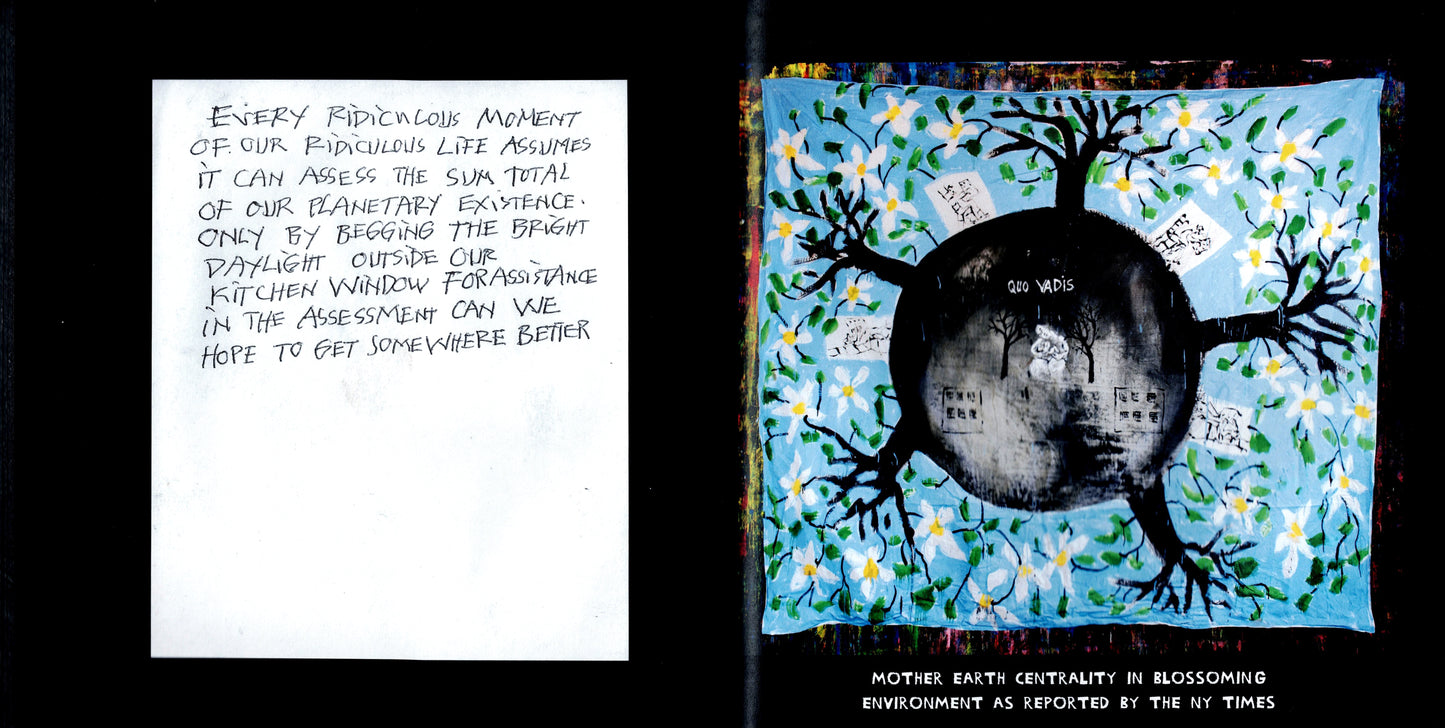 EVERY RIDICULOUS MOMENT
OF OUR RIDICULOUS LIFE ASSUMES
IT CAN ASSESS THE SUM TOTAL
OF OUR PLANETARY EXISTENCE.
ONLY BY BEGGING THE BRIGHT
DAYLIGHT OUTSIDE OUR
KITCHEN WINDOW FOR ASSISTANCE
IN THE ASSESSMENT CAN WE
HOPE TO GET SOMEWHERE BETTER
QUO VADIS
MOTHER EARTH CENTRALITY IN BLOSSOMING
ENVIRONMENT AS REPORTED BY THE NY TIMES